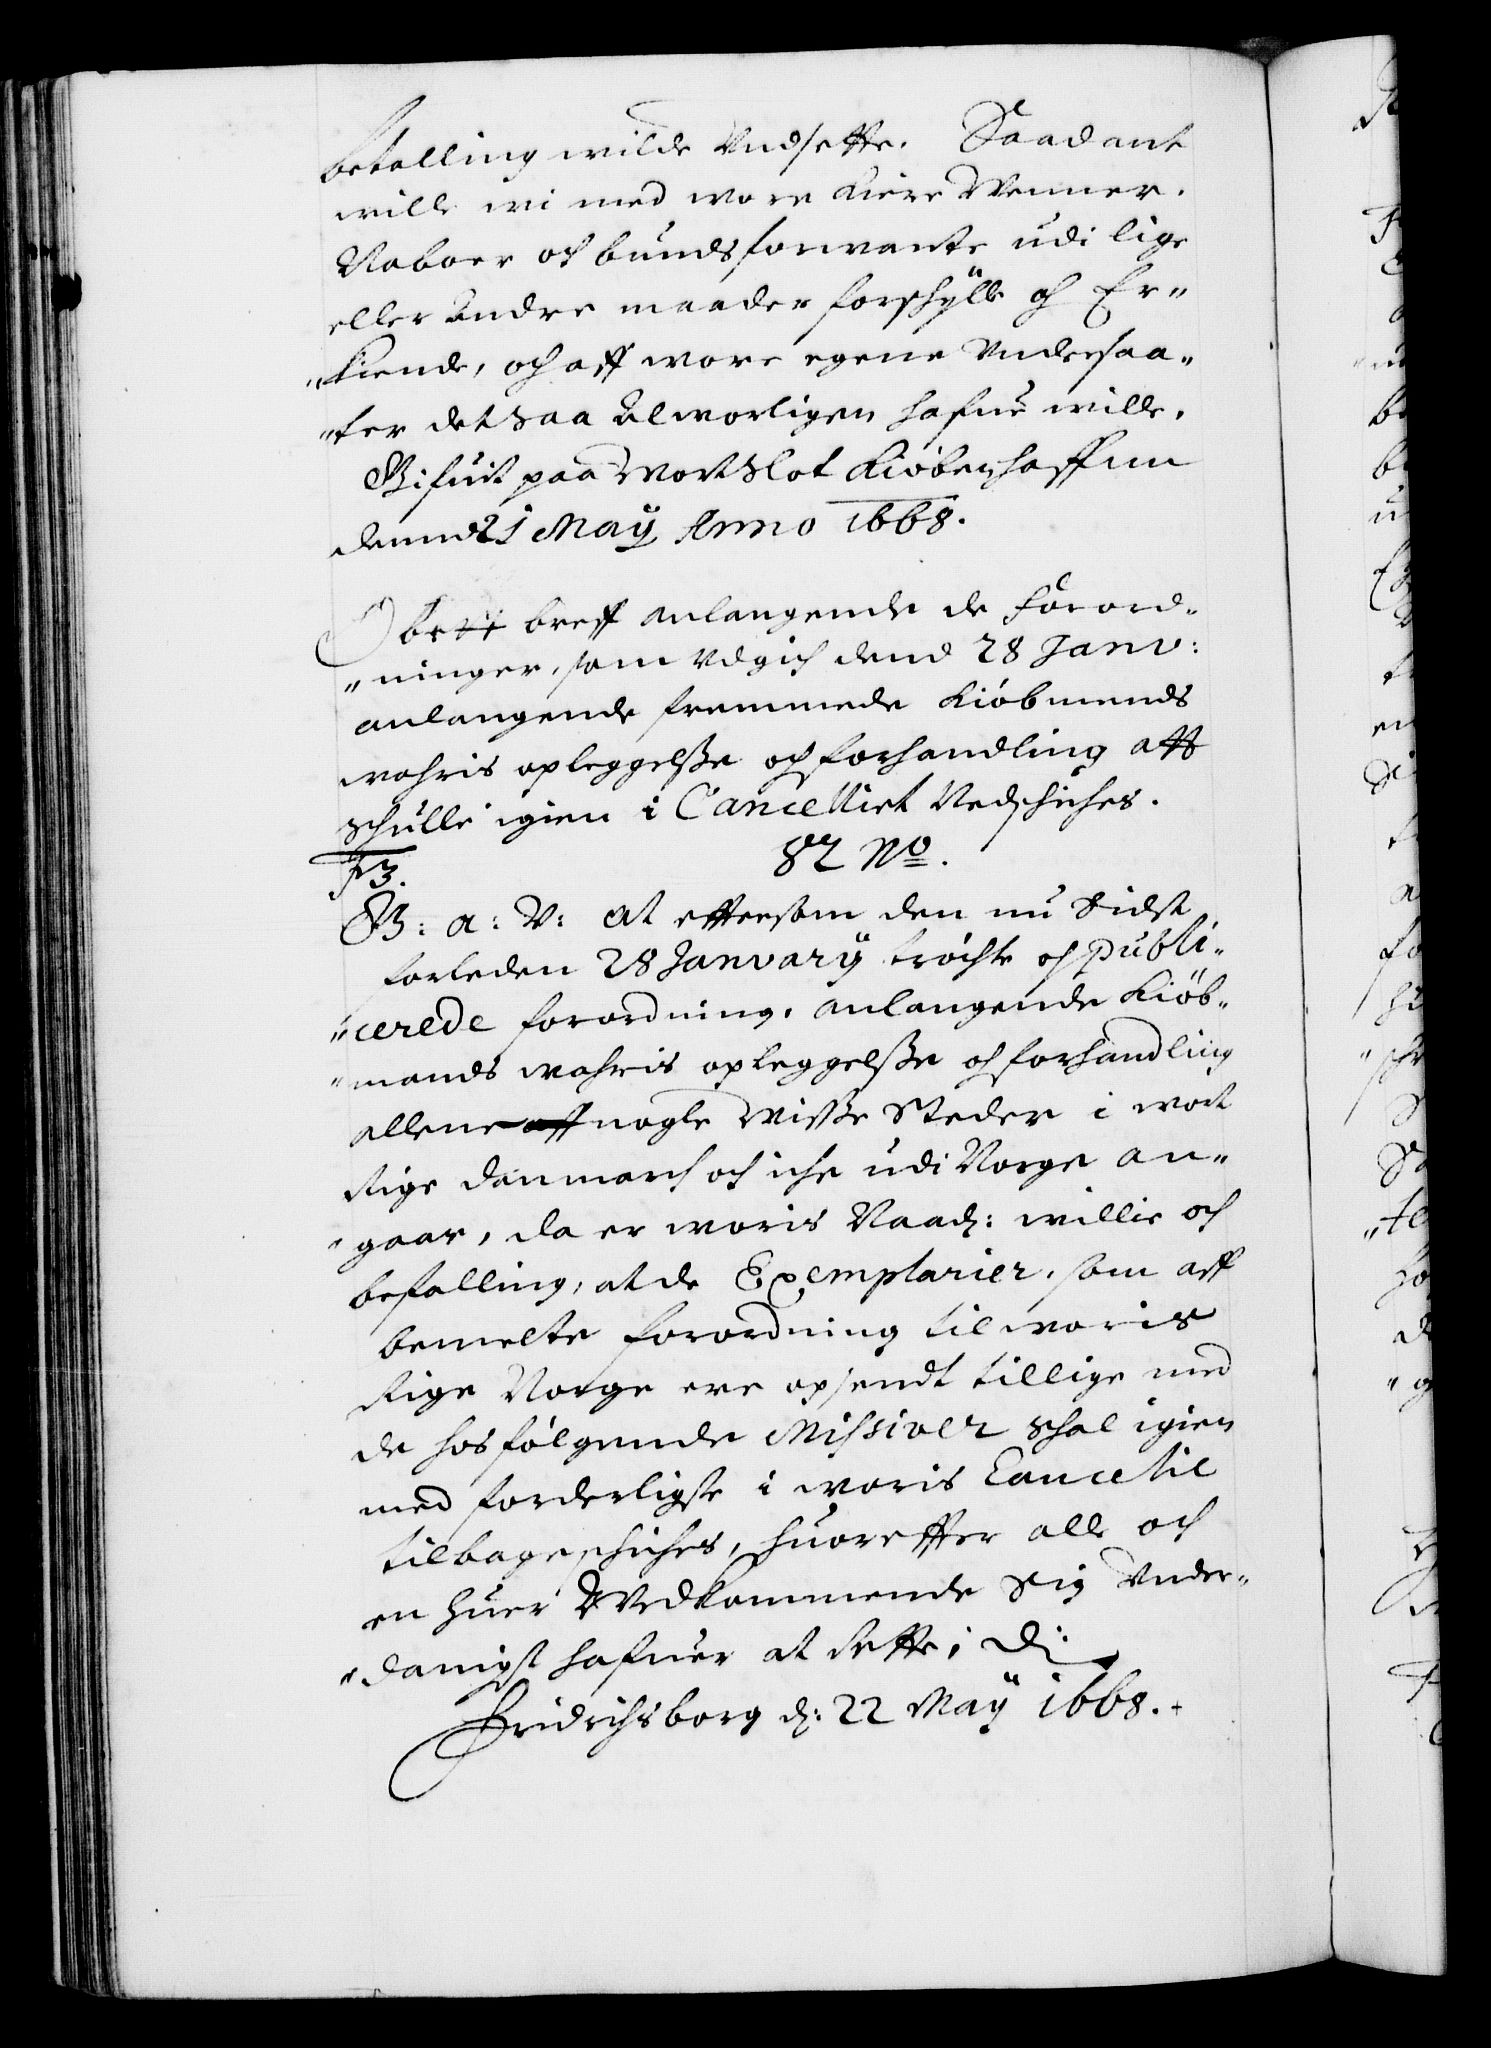 betalling wilde Vndsette. Saadant
wille wi med wore kiere Wenner.
Naboer och bundsforwante udi lige
eller Andre maader forschylle och Er„
„kiende, och aff wore egene Vndersaa„
„ter det saa Alworligen hafue wille.
Gifuit paa Wort Slot Kiöbenhaffnn
dennd 21 Maÿ Anno 1668.
Obet breff anlangende de Forord„
„ninger, som Udgich dend 28 Janv:
anlangende fremmede Kiöbmends
wahris opleggelsse och forhandling att
schulle igien i Cancelliet Nedschiches.
F3. 82 No.
G: a: V: at eftersom den nu Sidst
forleden 28 Januarÿ tröchte och publi„
„cerede forordning, anlangende Kiöb„
„mands wahris opleggelsse och forhandling
allene nogle Wisse Steder i wort
Rige Danmarch och iche udi Norge an„
„gaar, da er woris Naad: willie och
befalling, at de Exemplarier, som aff
bemelte forordning til woris
Rige Norge ere opsendt tillige med
de hosfölgende Missiver schal igien
med forderligste i woris Cancelie
tilbageschiches, huoreffter alle och
en huer Wedkommende Sig Vnder„
„danigst hafuer at rette, D:
Fridrichsborg d: 22 Maÿ 1668.